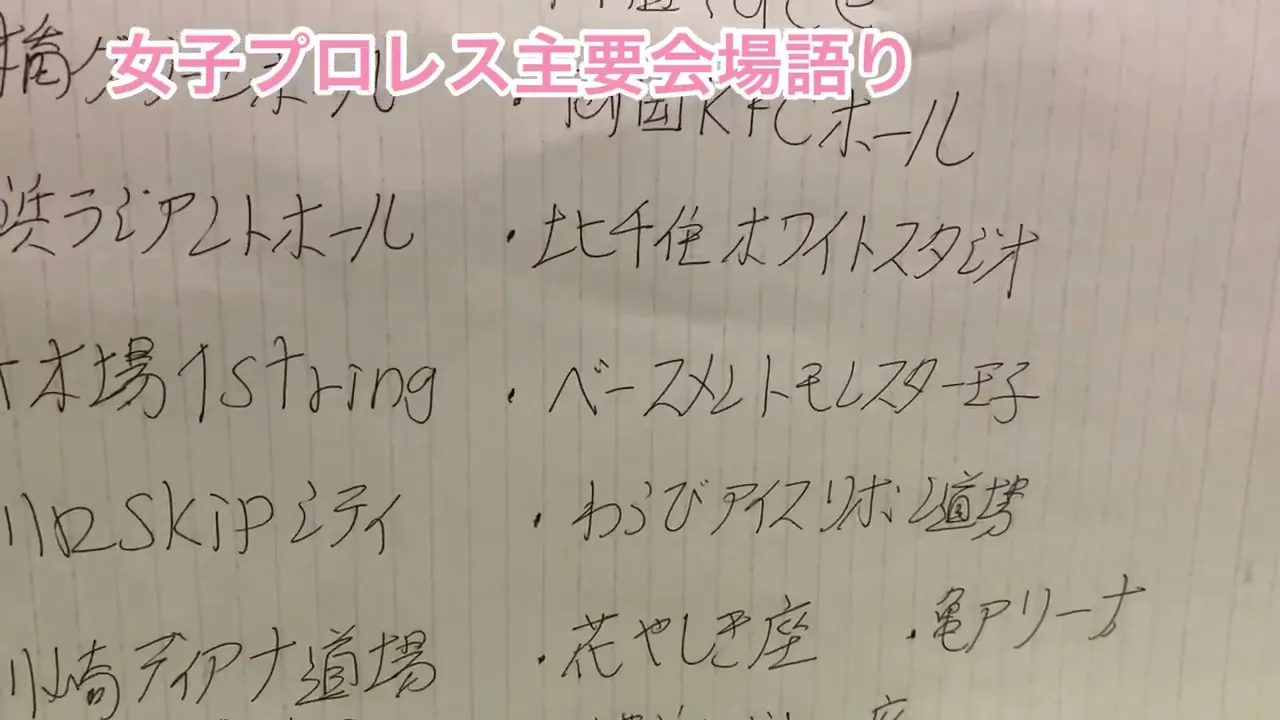 女子プロレス主要会場語り
両国KFCホール
浜ラジアントホール
・北千住ホワイトスタジオ
木場1string
・ベースメントモンスター王子
川口skipシティ
・わらびアイスリボン道場
川崎ディアナ道場
・花やしき座
・亀アリーナ